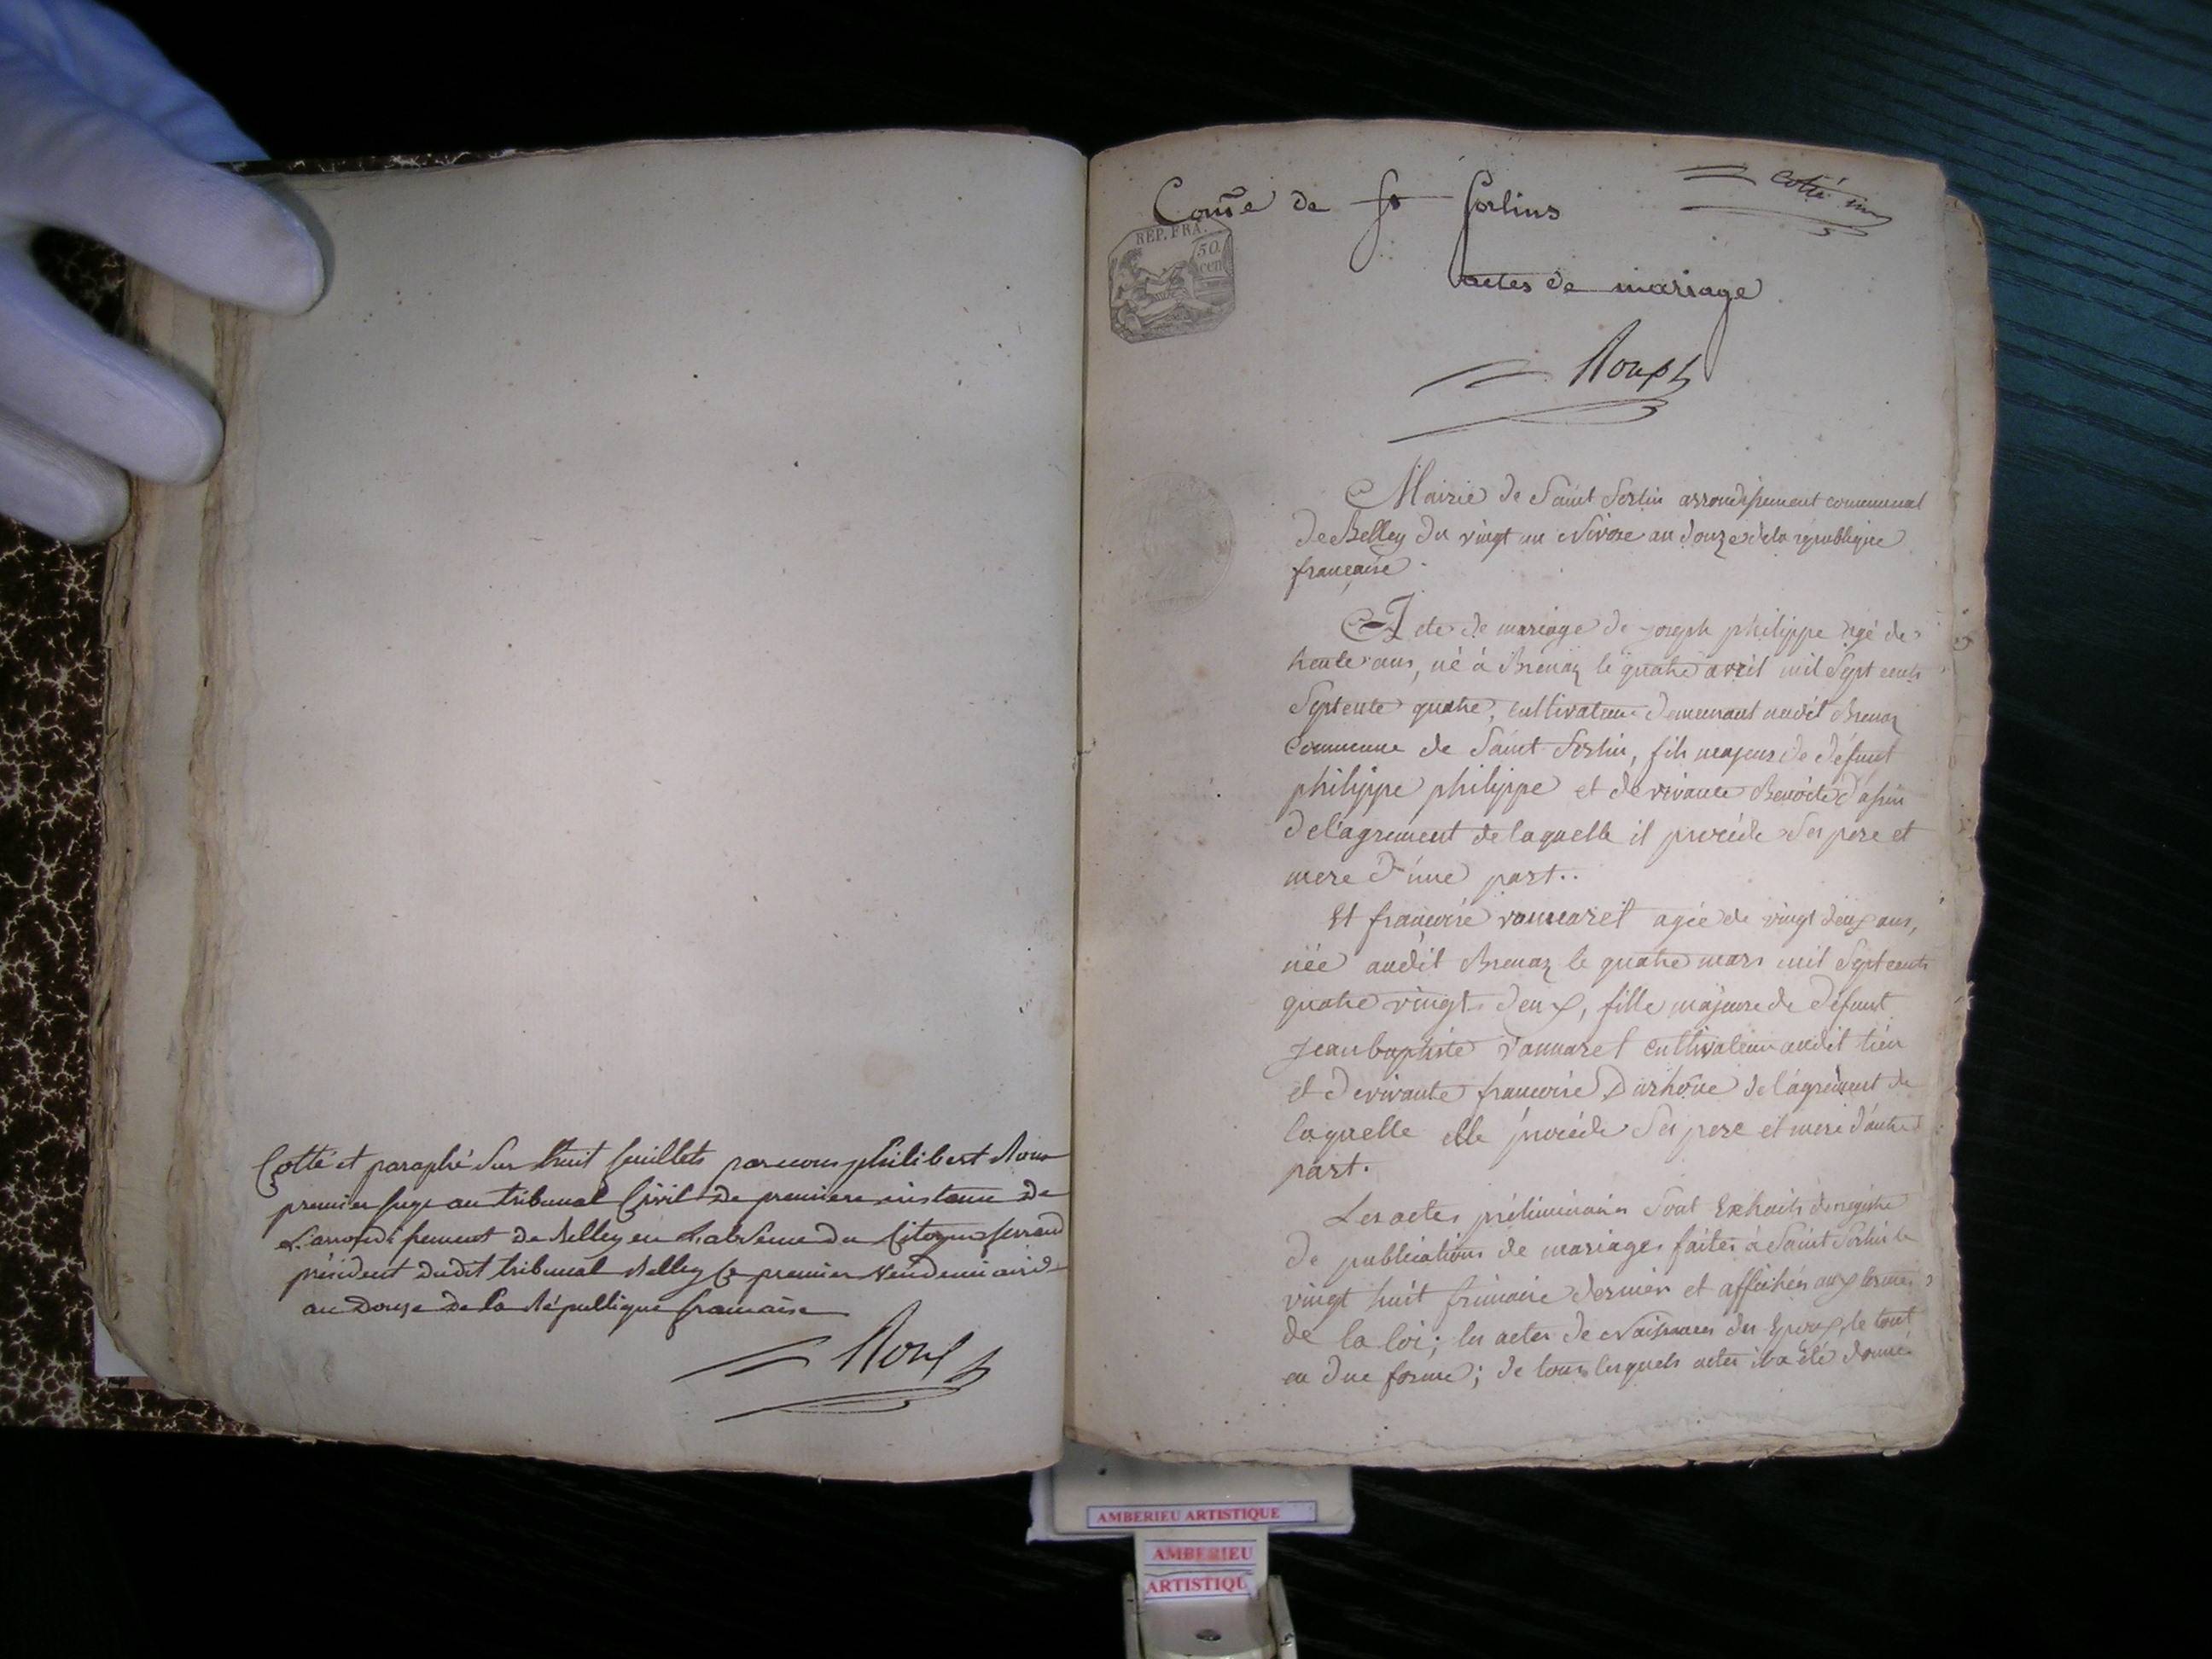 Cotté et paraphé sur huit feuillets par nous philibert Roux
premier juge au tribunal Civil de premiere instance de
L'arrondissement de Belley en L'absence du Citoyen ferrand
président dudit tribunal Belley Ce premier vendemiaire
an Douze de la République francaise
Roux
Com̃e de St Sorlins
cotté un
REP. FRA.
50 cen
actes de mariage
Roux
Mairie de Saint Sorlin arrondissement communal
de Belley du vingt un Nivose an douze de la république
française.
Acte de mariage de joseph philippe agé de
trente ans, né à Brenaz le quatre avril mil sept cents
septente quatre, cultivateur demeurant audit Brenaz
commune de Saint Sorlin, fils majeur de défunt
philippe philippe et de vivante Benoite
de l'agrement de laquelle il procéde ses pere et
mere d'une part..
Et françoise vannarel agée de vingt deux ans,
née audit Brenaz le quatre mars mil sept cents
quatre vingt deux, fille majeure de défunt
jean baptiste vannarel cultivateur audit lieu
et de vivante francoise de l'agrément de
laquelle elle procéde ses pere et mere d'autre
part.
Les actes préliminaires sont Extraits du registre
de publications de mariages faites à Saint Sorlin le
vingt huit frimaire dernier et affichées aux termes
de la loi; les actes de Naissances des Epoux, le tout
en due forme; de tous lesquels actes il a été donné
AMBERIEU ARTISTIQUE
AMBERIEU
ARTISTIQU